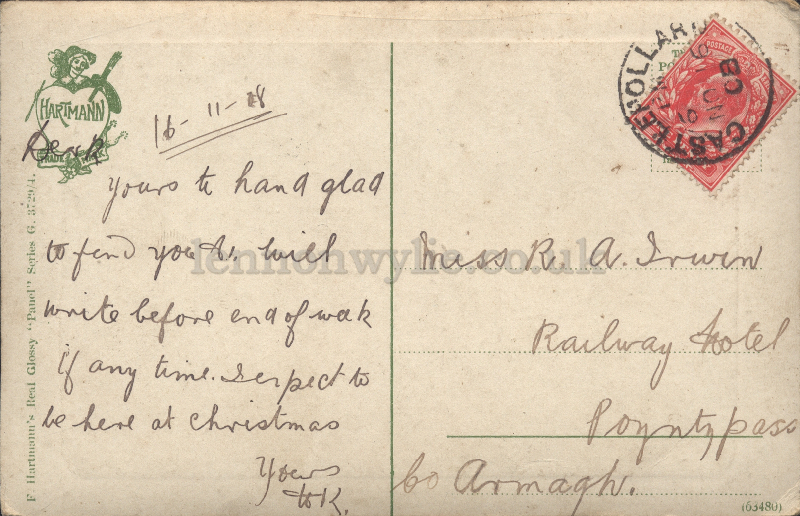 HARTMANN
TRADE MARK
16-11-08
Dear R
Yours to hand glad
to find you A1. will
write before end of week
if any time. I expect to
be here at Christmas
Yours
W.K.
F Hartmann's Real Glossy "Panel" Series G. 3729/4.
CASTLEPOLLARD
08
POSTAGE
Miss R. A. Irwin
Railway Hotel
Poyntzpass
Co Armagh.
(63480)
lennonwylie.co.uk